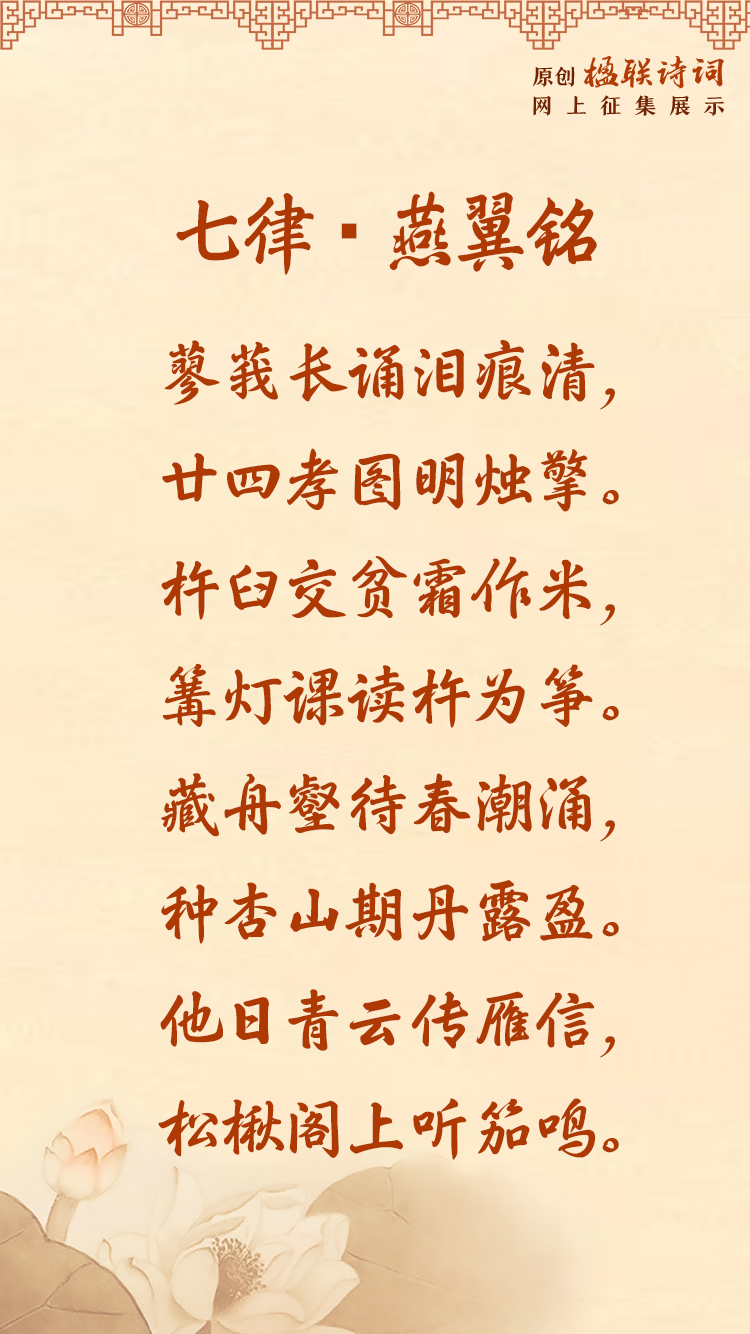 原创 楹联诗词
网上征集展示
七律·燕翼铭
蓼莪长诵泪痕清，
廿四孝图明烛擎。
杵臼交贫霜作米，
篝灯课读杵为筝。
藏舟壑待春潮涌，
种杏山期丹露盈。
他日青云传雁信，
松楸阁上听笳鸣。